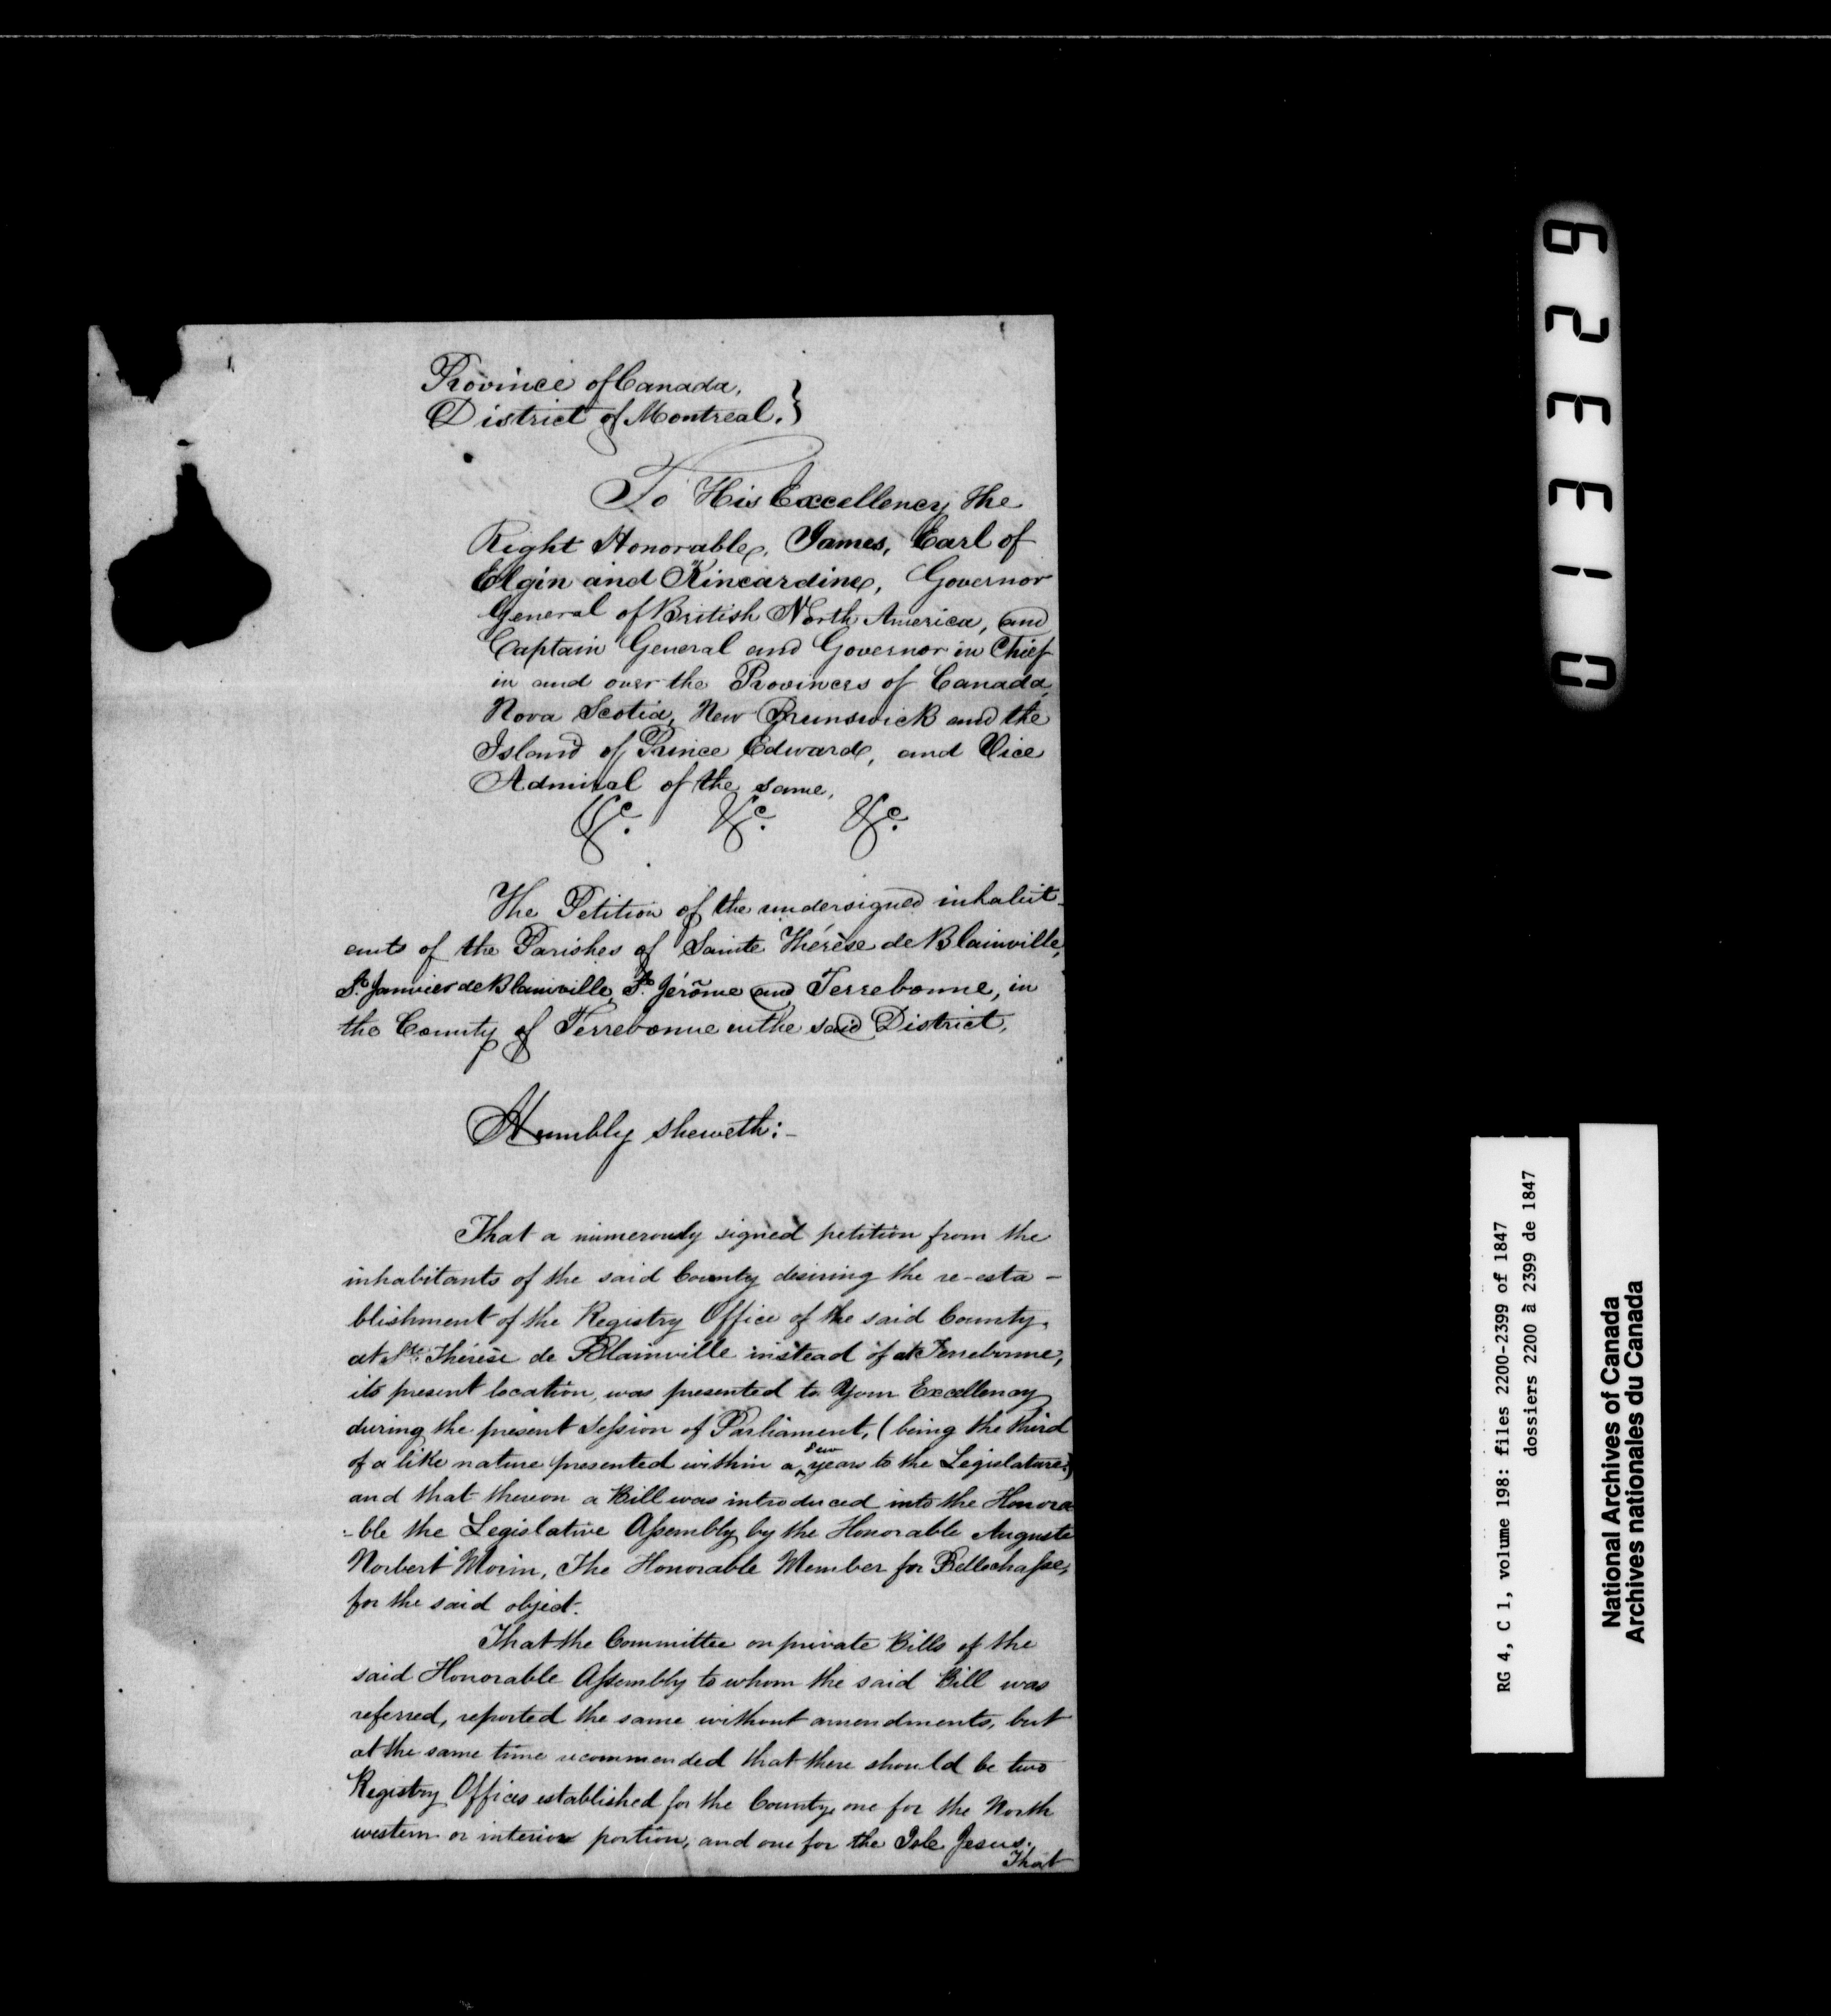 Province of Canada,
District of Montreal. }
To His Excellency the
Right Honorable, James, Earl of
Elgin and Kincardine, Governor
General of British North America, and
Captain General and Governor in Chief
in and over the Provinces of Canada,
Nova Scotia, New Brunswick and the
Island of Prince Edward, and Vice
Admiral of the same,
&c. &c. &c.
The Petition of the undersigned inhabit-
ants of the Parishes of Sainte Thérèse de Blainville,
St. Janvier de Blainville, St. Jérôme and Terrebonne, in
the County of Terrebonne in the said District,
Humbly sheweth:-
That a numerously signed petition from the
inhabitants of the said County desiring the re-esta-
blishment of the Registry Office of the said County,
at Ste. Thérèse de Blainville instead of at Terrebonne,
its present location, was presented to Your Excellency
during the present Session of Parliament, (being the third
of a like nature presented within a few years to the Legislature;)
and that thereon a Bill was introduced into the Honora
-ble the Legislative Assembly by the Honorable Auguste
Norbert Morin, The Honorable Member for Bellechasse,
for the said object.
That the Committee on private Bills of the
said Honorable Assembly to whom the said Bill was
referred, reported the same without amendments, but
at the same time recommended that there should be two
Registry Offices established for the County, one for the North
western or interior portion, and one for the Isle Jesus.
That
013329
RG 4, C 1, volume 198: files 2200-2399 of 1847
dossiers 2200 à 2399 de 1847
National Archives of Canada
Archives nationales du Canada